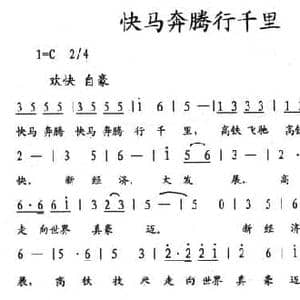 快马奔腾行千里
1=C 2/4
欢快 自豪
3 5 5 5 | 3 5 5 5 | i 6 | 5 — | 1 3 3 3 | 1 3 3
快马 奔腾 快马 奔腾 行 千 里, 高铁 飞驰 高铁
2 — | 3 5 | 6 — | i 5 6 | 3 — | 2
快。 新 经 济, 大 发 展。 高
6·6 6 i | 3 2 3 | 5 — | 5 — | i 0 | 3 5
走 向 世界 真 豪 迈。 新 经 济
6 — | 5 5 | 6 3 | 2·2 2 1 | 6 2 | i
展, 高 铁 技 走 向 世界 真 豪 迈